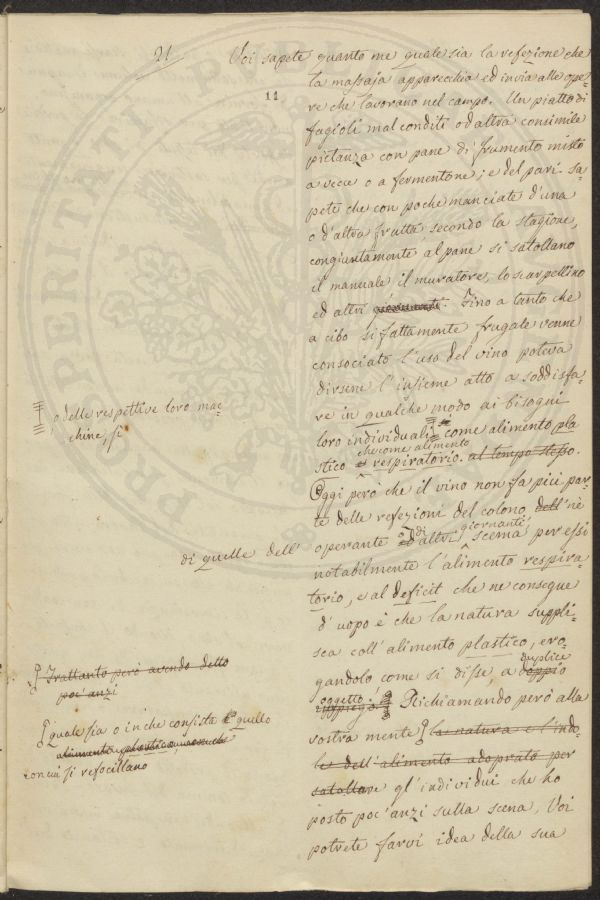 21
11
Voi sapete quanto me quale sia la refezione che
la massaja apparecchia ed invia alle ope-
re che lavorano nel campo. Un piatto di
fagioli mal conditi o d'altra consimile
pietanza con pane di frumento misto
a vecce o a fermentone; e del pari sa-
pete che con poche manciate d'una
o d'altra frutta secondo la stagione,
congiuntamente al pane si satollano
il manuale il muratore, lo scarpellino
ed altri. Fino a tanto che
a cibo sì fattamente frugale venne
consociato l'uso del vino poteva
dirsene l'insieme atto a soddisfa-
re in qualche modo ai bisogni
loro individuali come alimento pla-
che come alimento
stico e respiratorio. al tempo stesso.
Oggi però che il vino non fa più par-
te delle refezioni del colono dell' nè
di quelle dell' operante od altri scema per essi
di giornanti
notabilmente l'alimento respira-
torio, e al deficit che ne consegue
d'uopo è che la natura suppli-
sca coll'alimento plastico, ero-
gandolo come si disse, a doppio
duplice
oggetto. Richiamando però alla
vostra mente la natura e l'indo-
le dell'alimento adoprato per
satollare gl'individui che ho
posto poc'anzi sulla scena, Voi
potrete farvi idea della sua
o delle respettive loro mac-
chine, si
Frattanto però avendo detto
poc'anzi
quale sia o in che consista quello
con cui si refocillano
PERITI